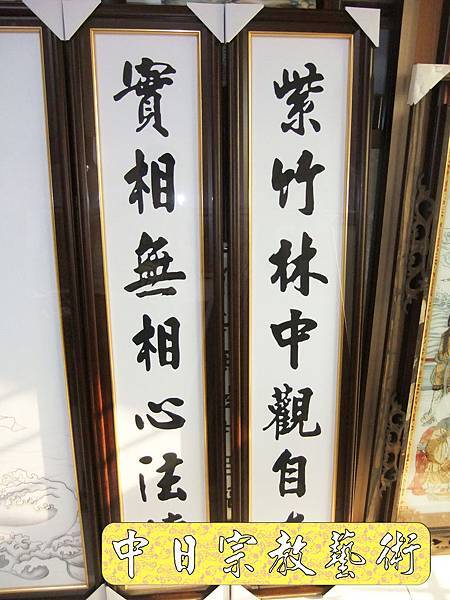 紫竹林中觀自
實相無相心法
中日宗教藝術